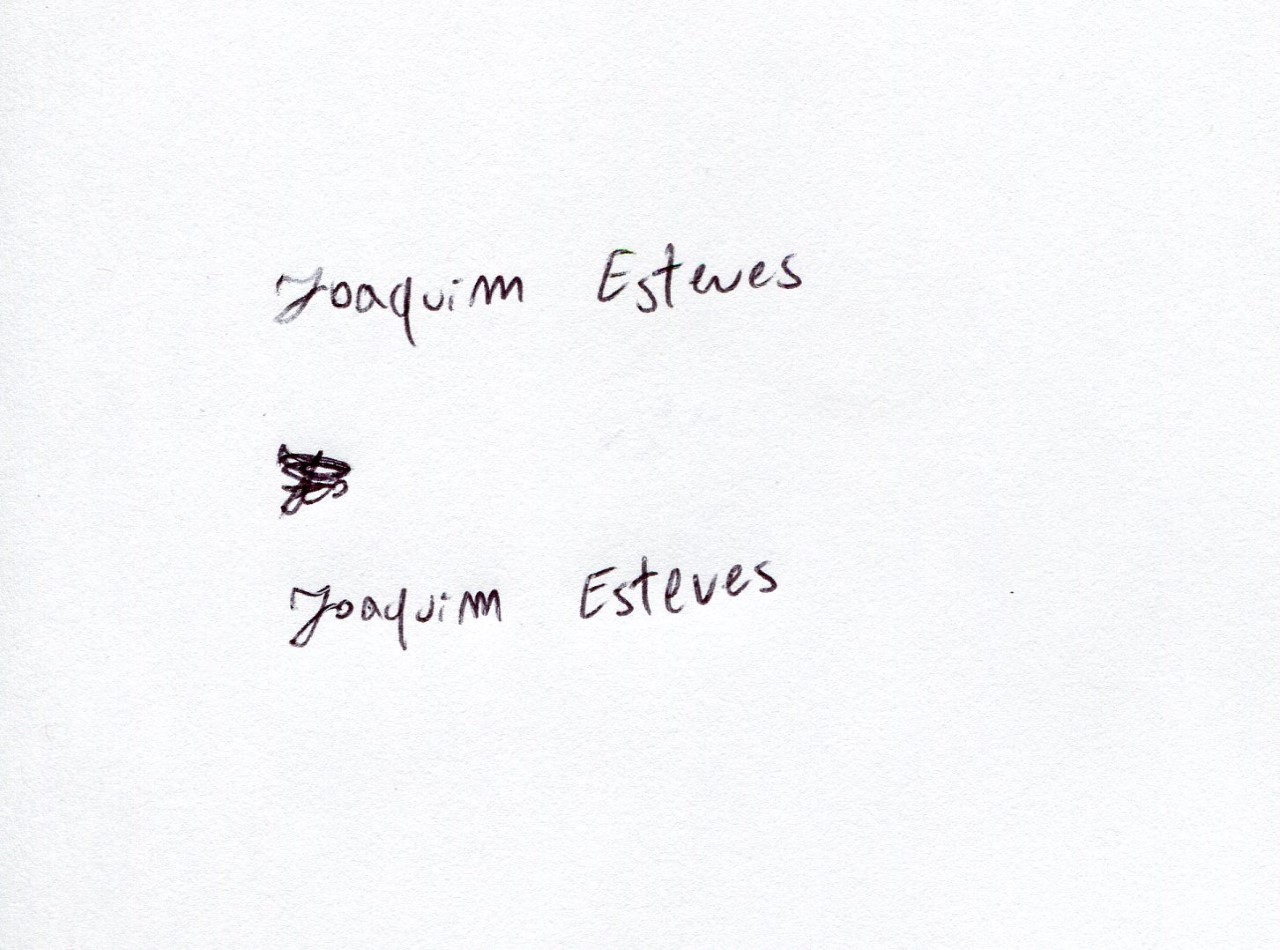 Joaquim Esteves
Joaquim Esteves